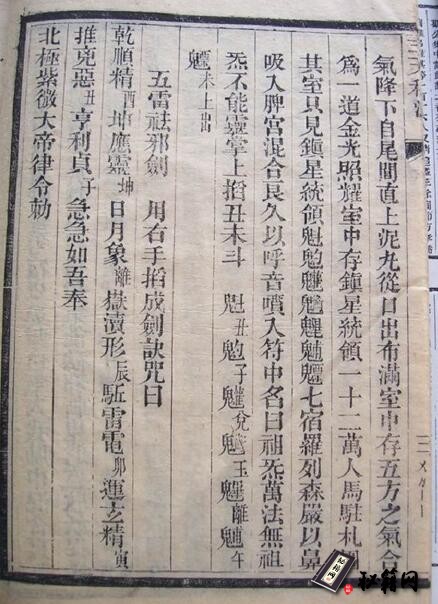 氣降下自尾閭直上泥九從口出布滿室中存五方之氣合
為一道金光照耀室中存鎮星統領一十二萬人馬駐札
其室只見鎮星統領魁七宿羅列森嚴以鼻
吸入脾宮混合良久以呼音噴入符中名曰祖炁萬法無祖
炁不能靈掌上掐丑未斗 魁丑 子 兌 玉 離 午
未上出
五雷祛邪劍 用右手掐成劍訣咒曰
乾順精酉坤應靈坤日月象離嶽瀆形辰駈雷電卯運玄精寅
推克惡丑亨利貞子急急如吾奉
北極紫微大帝律令勅
秘籍网